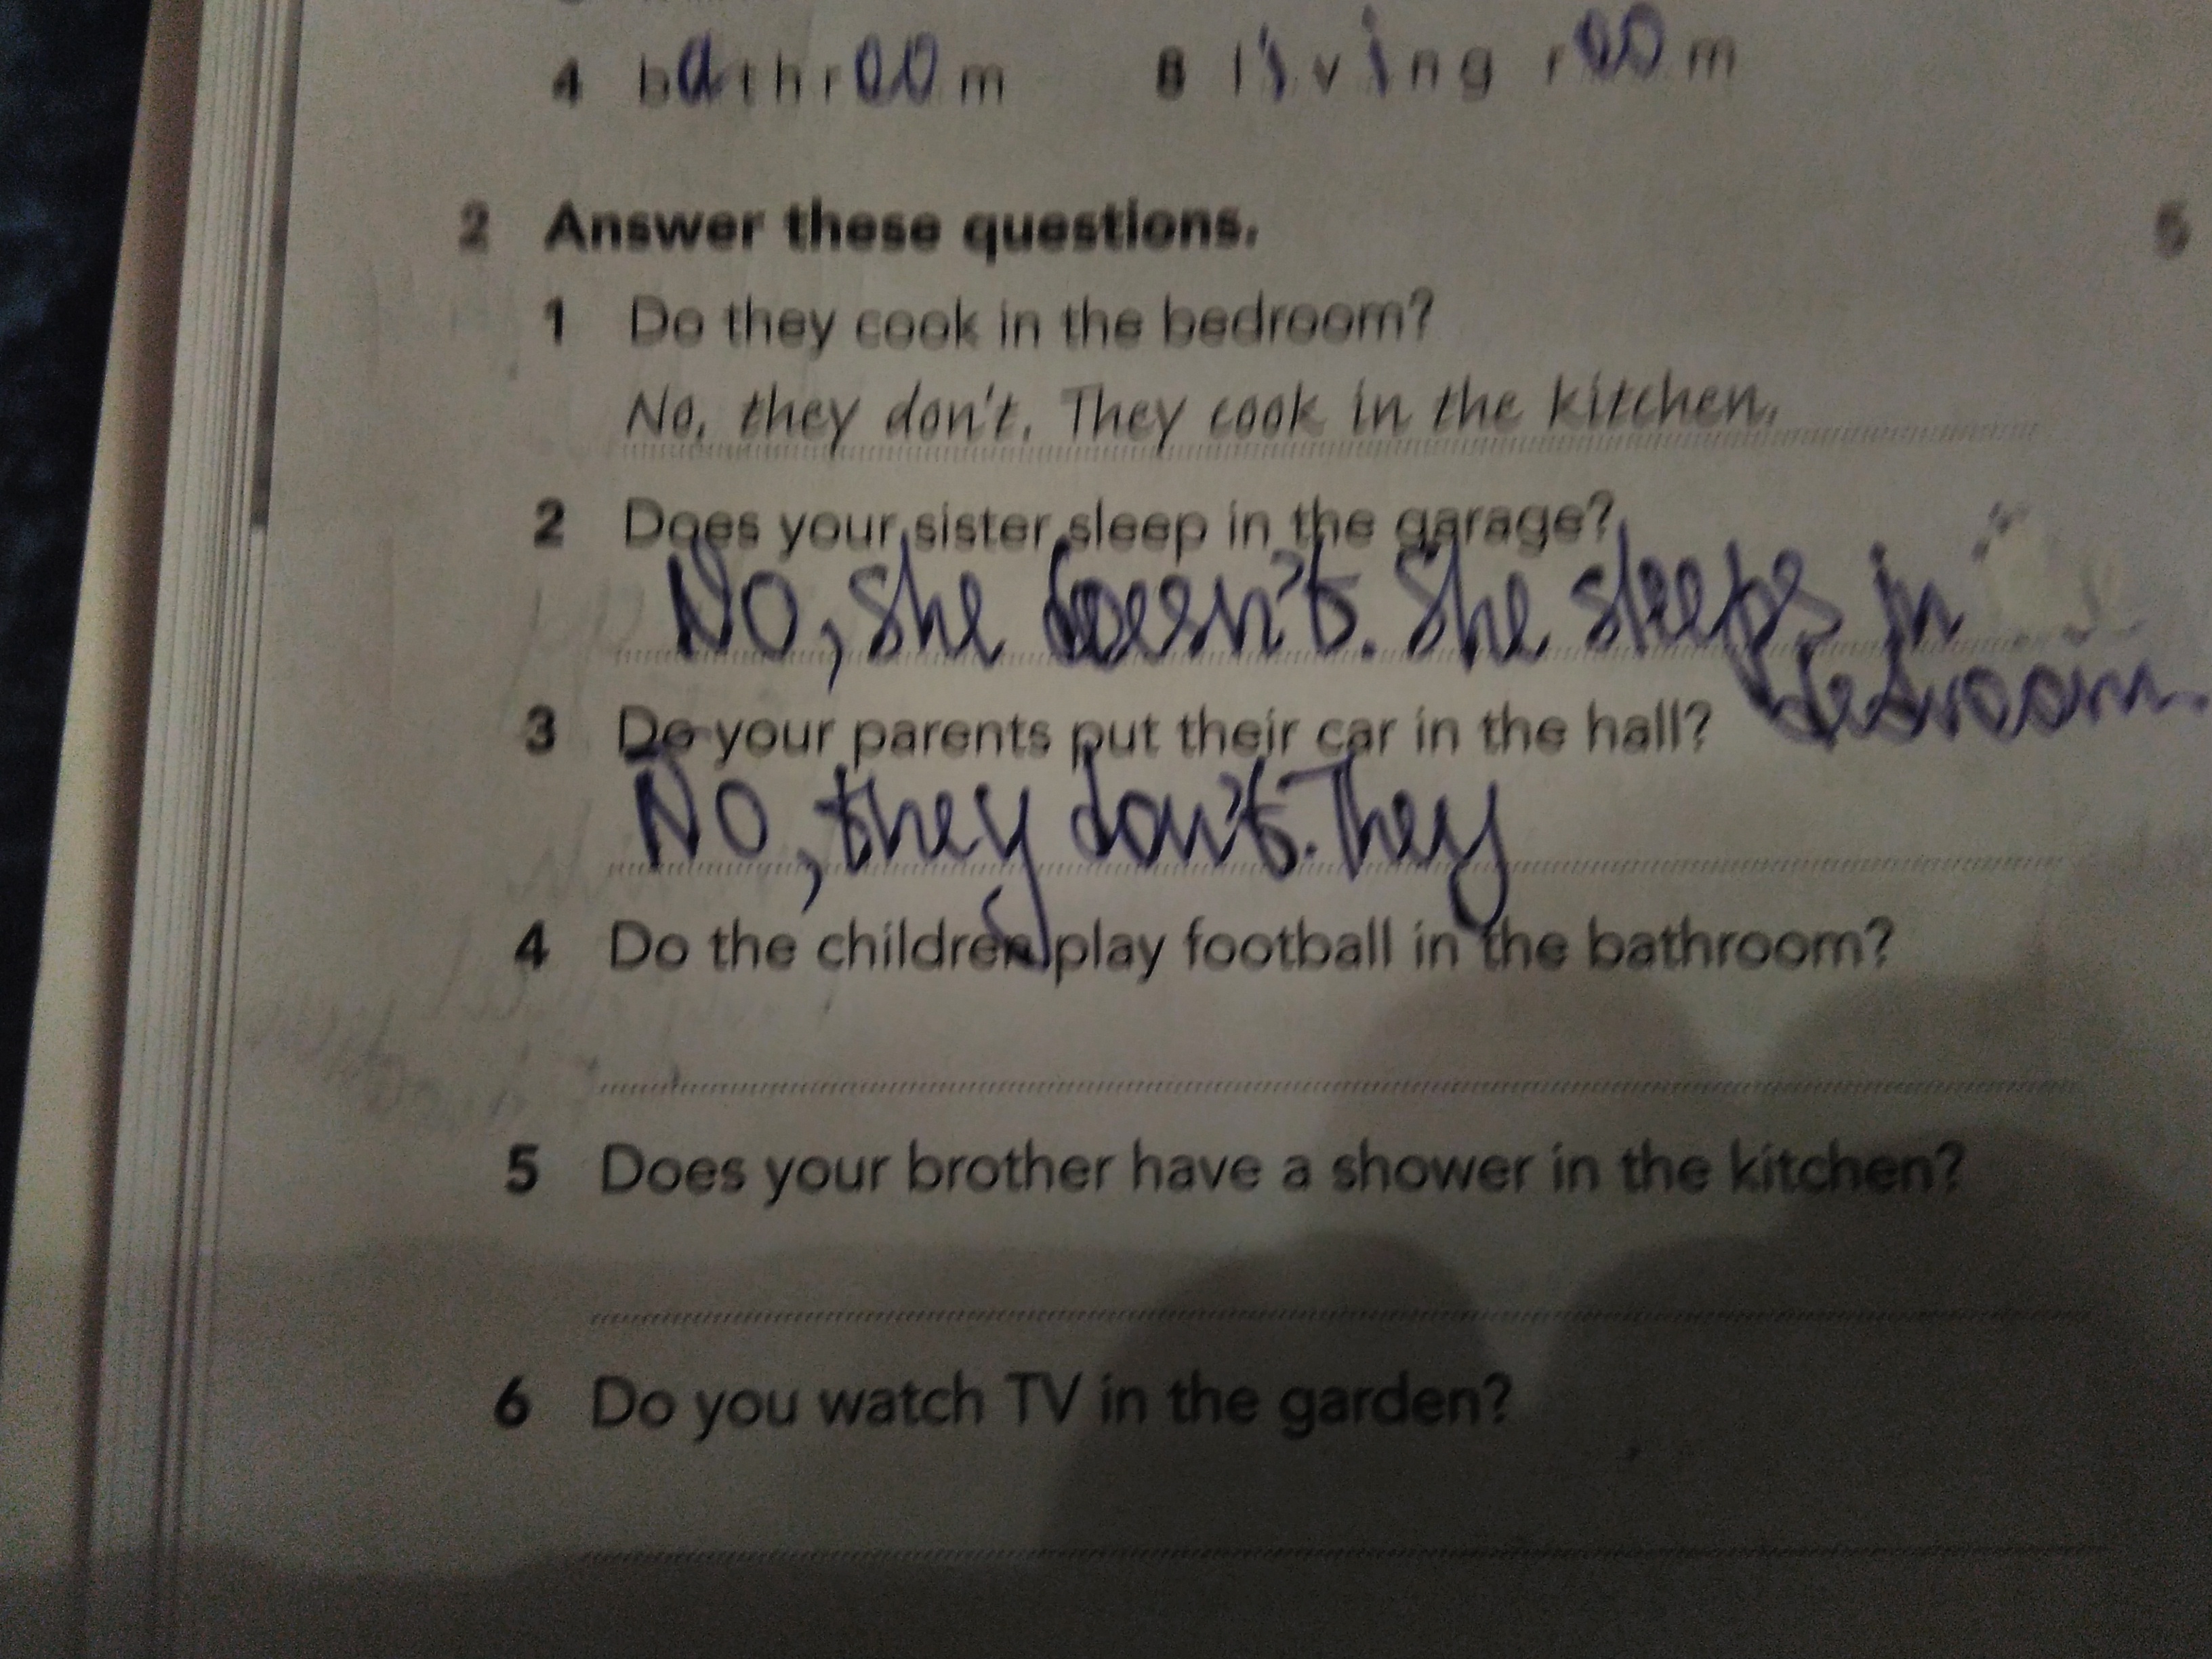 4 bathroom 8 living room
2 Answer these questions.
5
1 Do they cook in the bedroom?
No, they don't. They cook in the kitchen.
2 Does your sister sleep in the garage?
No, she doesn't. She sleeps in
bedroom.
3 Do your parents put their car in the hall?
No, they don't. They
4 Do the children play football in the bathroom?
5 Does your brother have a shower in the kitchen?
6 Do you watch TV in the garden?